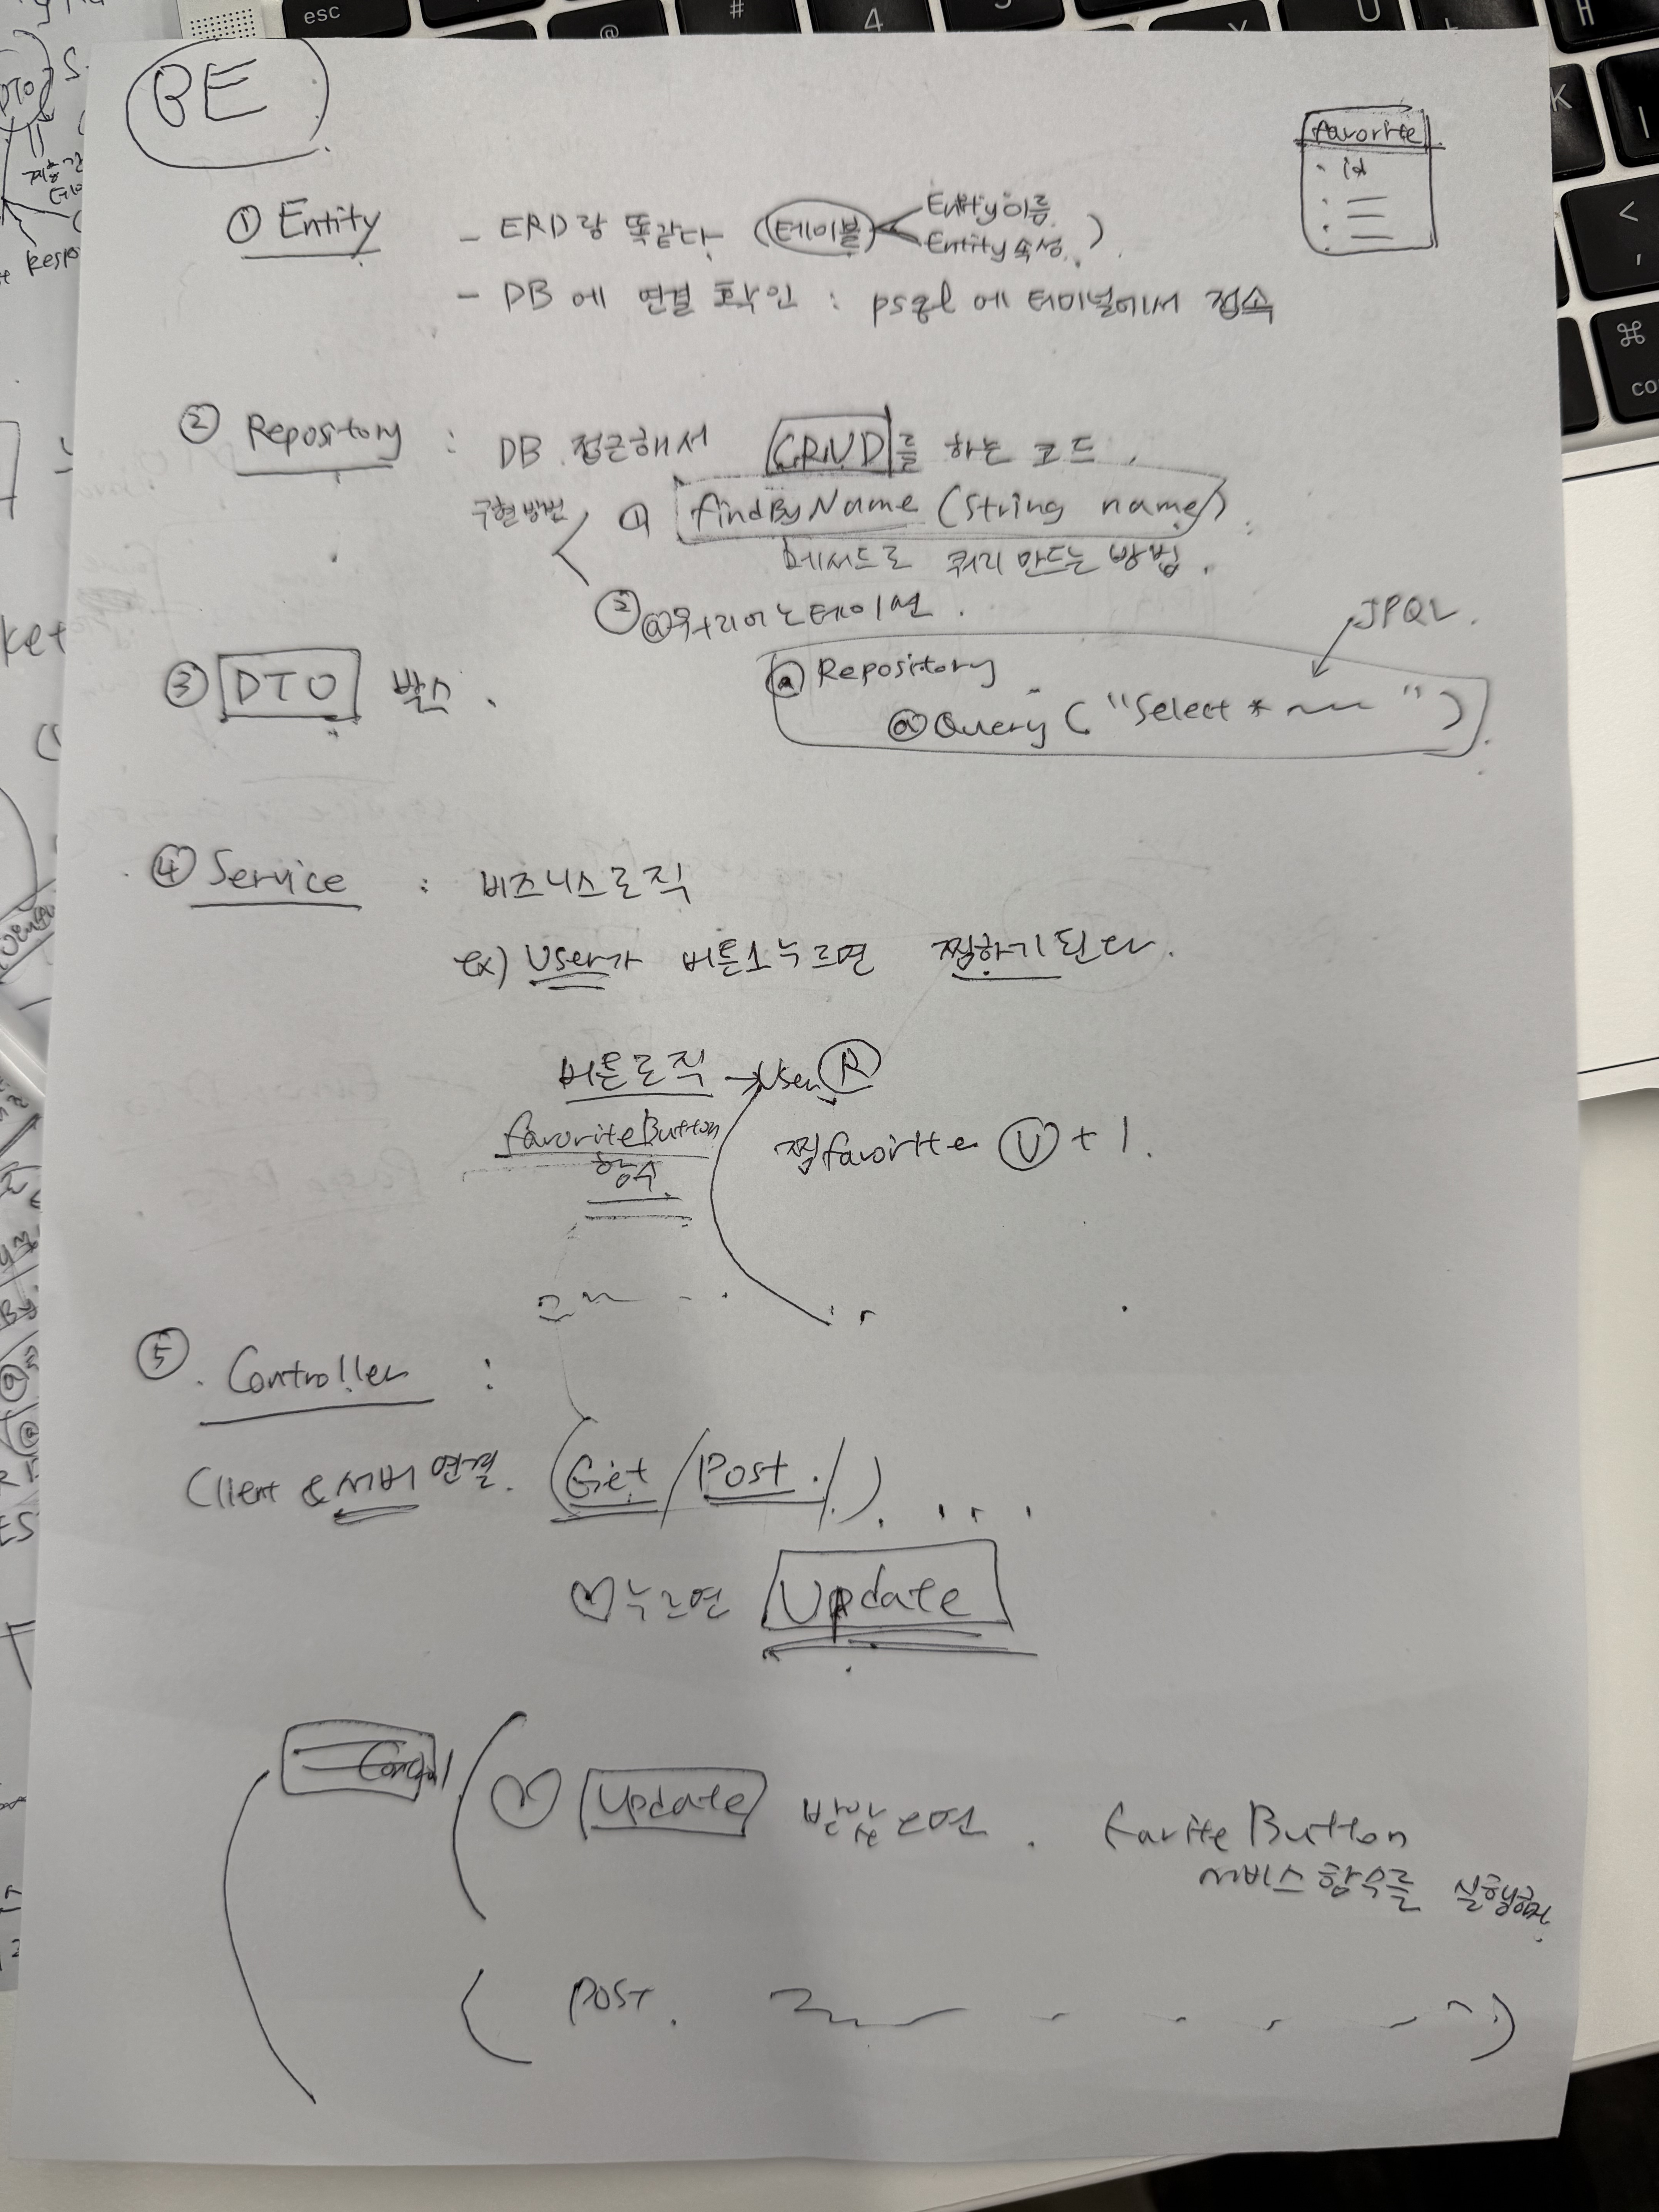 BE
favorite
· id
① Entity - ERD랑 똑같다 (테이블 < Entity이름
Entity속성.)
- DB에 연결 확인 : psql에 터미널에서 접속
② Repository : DB 접근해서 CRUD를 하는 코드.
구현방법 < ① findByName (String name)
메서드로 쿼리 만드는 방법.
② @쿼리어노테이션.
JPQL.
③ DTO 박스.
@Repository
@Query ("Select * ~~ ")
④ Service : 비즈니스로직
ex) User가 버튼1누르면 찜하기된다.
버튼로직 → User Ⓡ
favoriteButton
함수
찜favorite Ⓤ + 1.
⑤. Controller :
Client & 서버 연결. (Get / Post. / ). ...
♡누르면 Update
♡ Update 받았으면. FariteButton
서비스함수를
(POST. )
esc
@
#
4
U
H
K
<
,
⌘
DTO
ket